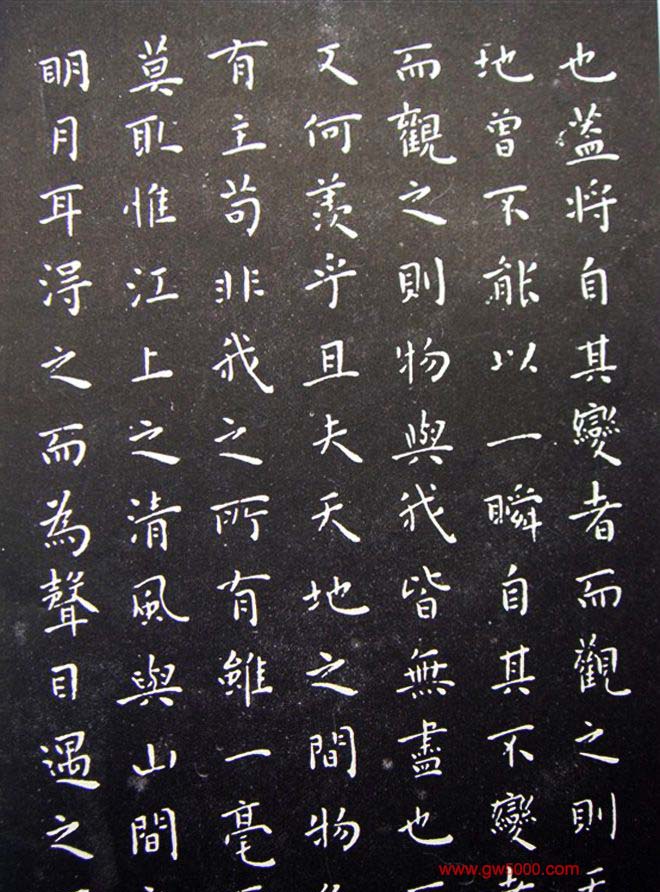 也蓋将自其變者而觀之則
地曾不能以一瞬自其不變
而觀之則物與我皆無盡也
又何羨乎且夫天地之間物
有主苟非我之所有雖一毫
莫取惟江上之清風與山間
明月耳得之而為聲目遇之
www.gw5000.com